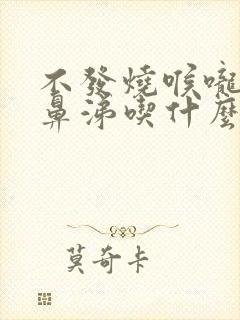 不發燒喉嚨
鼻涕喫什麼
莫奇卡